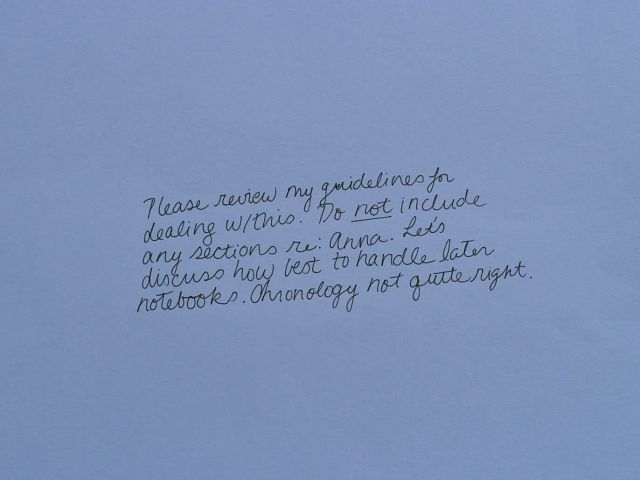 Please review my guidelines for
dealing w/this. Do not include
any sections re: Anna. Let's
discuss how best to handle later
notebooks. Chronology not quite right.